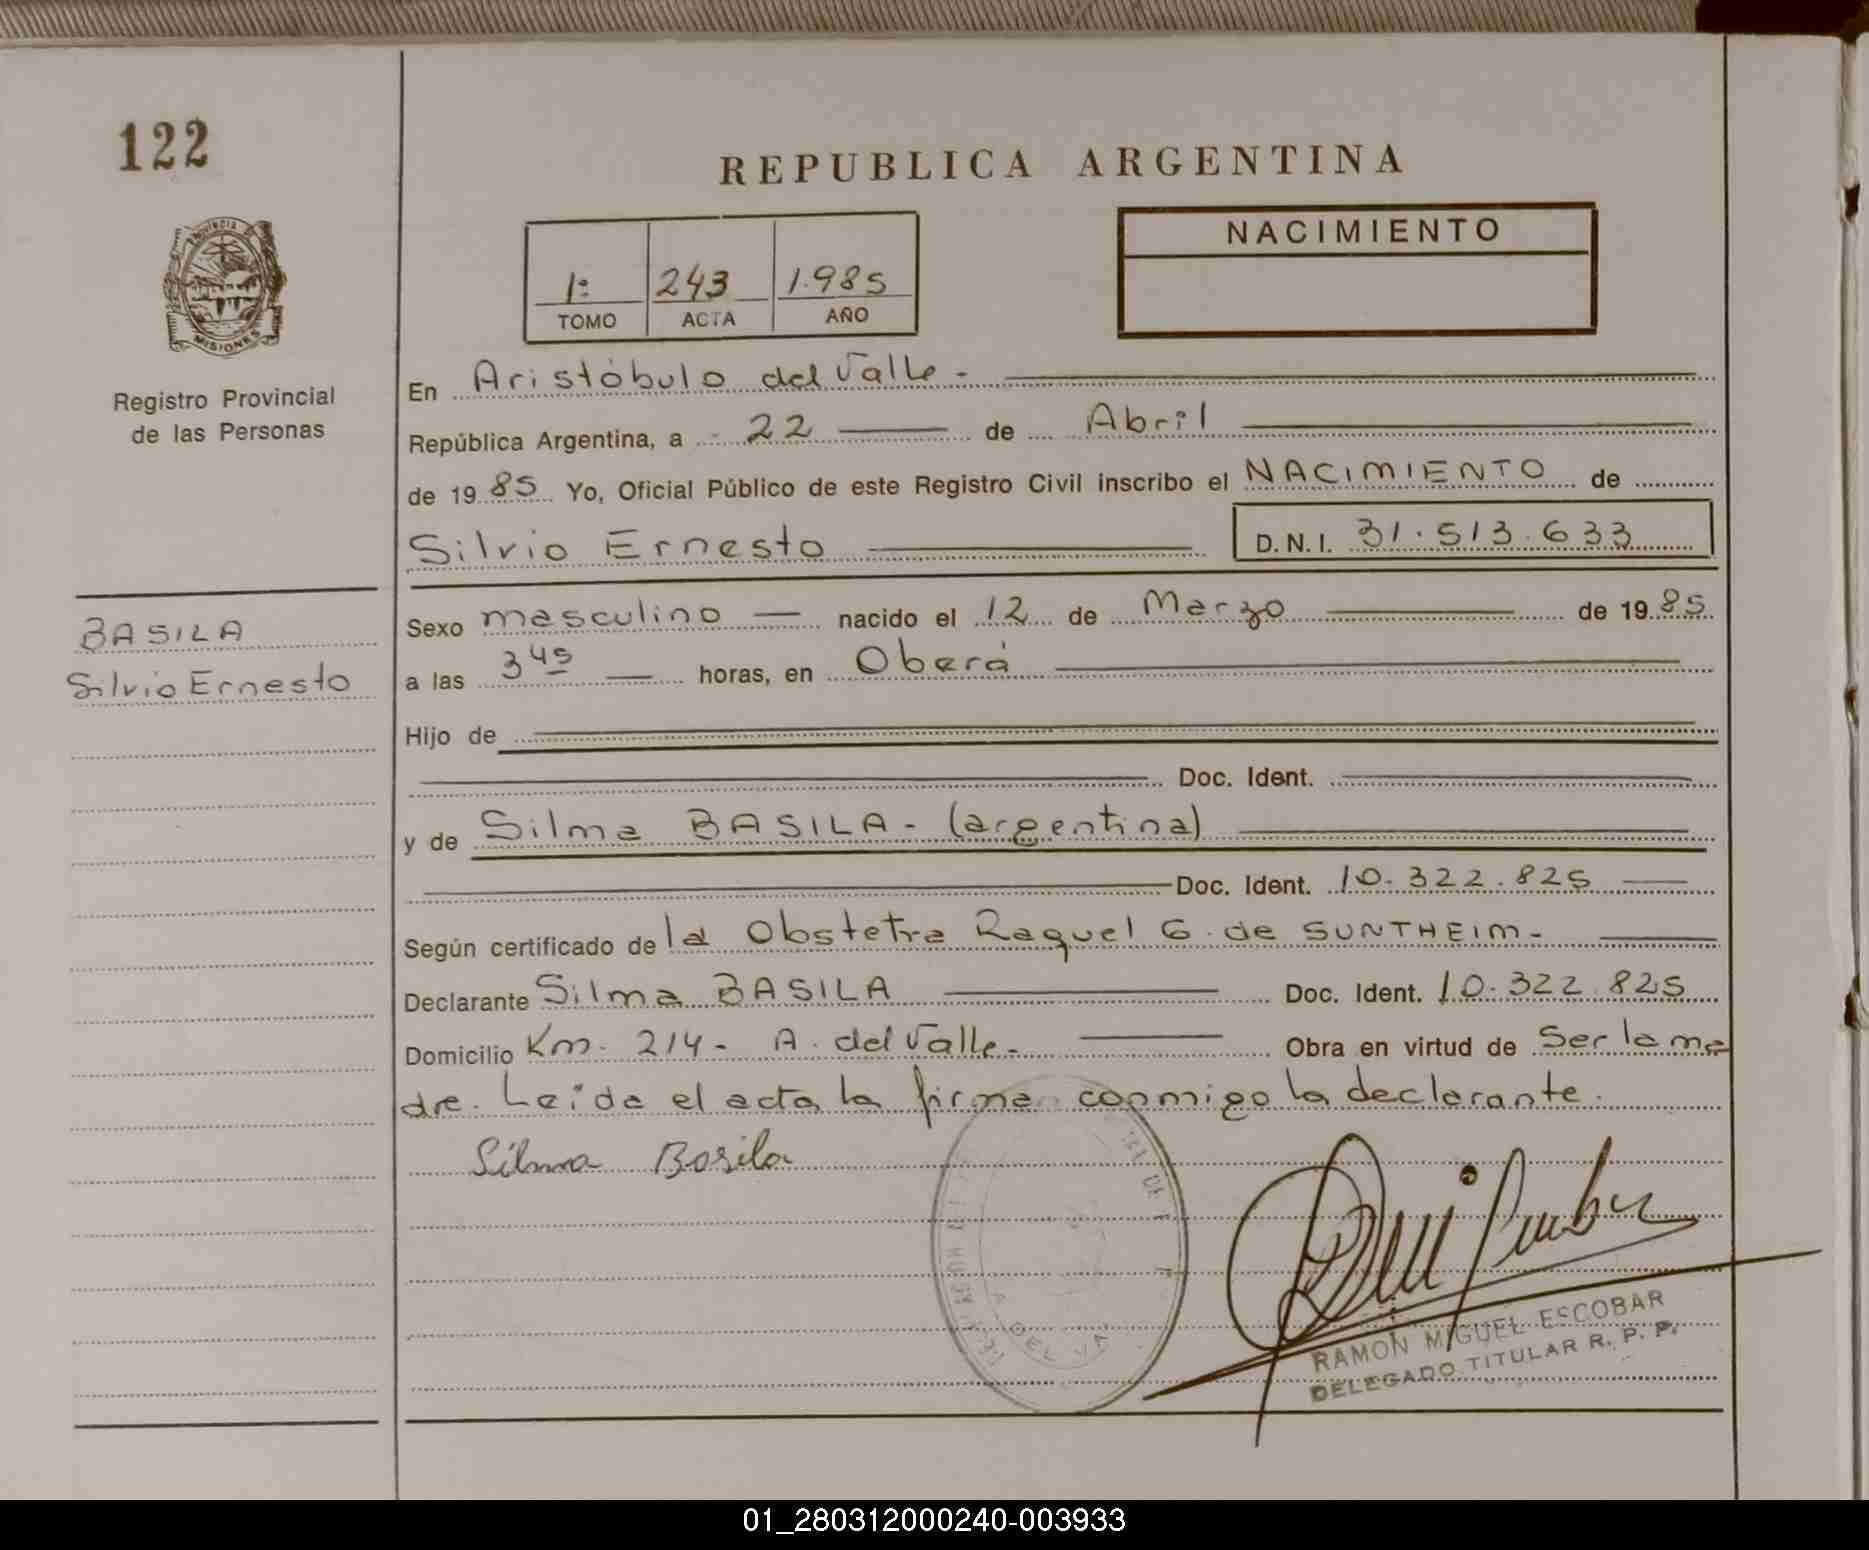 122
REPUBLICA ARGENTINA
Provincia de
MISIONES
NACIMIENTO
1º 243 1.985
TOMO ACTA AÑO
Registro Provincial
de las Personas
En Aristóbulo del Valle -
República Argentina, a 22 de Abril
de 1985 Yo, Oficial Público de este Registro Civil inscribo el NACIMIENTO de
Silvio Ernesto D.N.I. 31.513.633
BASILA
Silvio Ernesto
Sexo masculino nacido el 12 de Marzo de 1985
a las 3 45 horas, en Oberá
Hijo de
Doc. Ident.
y de Silma BASILA - (argentina)
Doc. Ident. 10.322.825
Según certificado de la Obstetra Raquel G. de SUNTHEIM -
Declarante Silma BASILA Doc. Ident. 10.322.825
Domicilio Km. 214 - A. del Valle - Obra en virtud de Ser la ma
dre. Leída el acta la firma conmigo la declarante.
Silma Basila
RAMON MIGUEL ESCOBAR
DELEGADO TITULAR R. P. P.
01_280312000240-003933